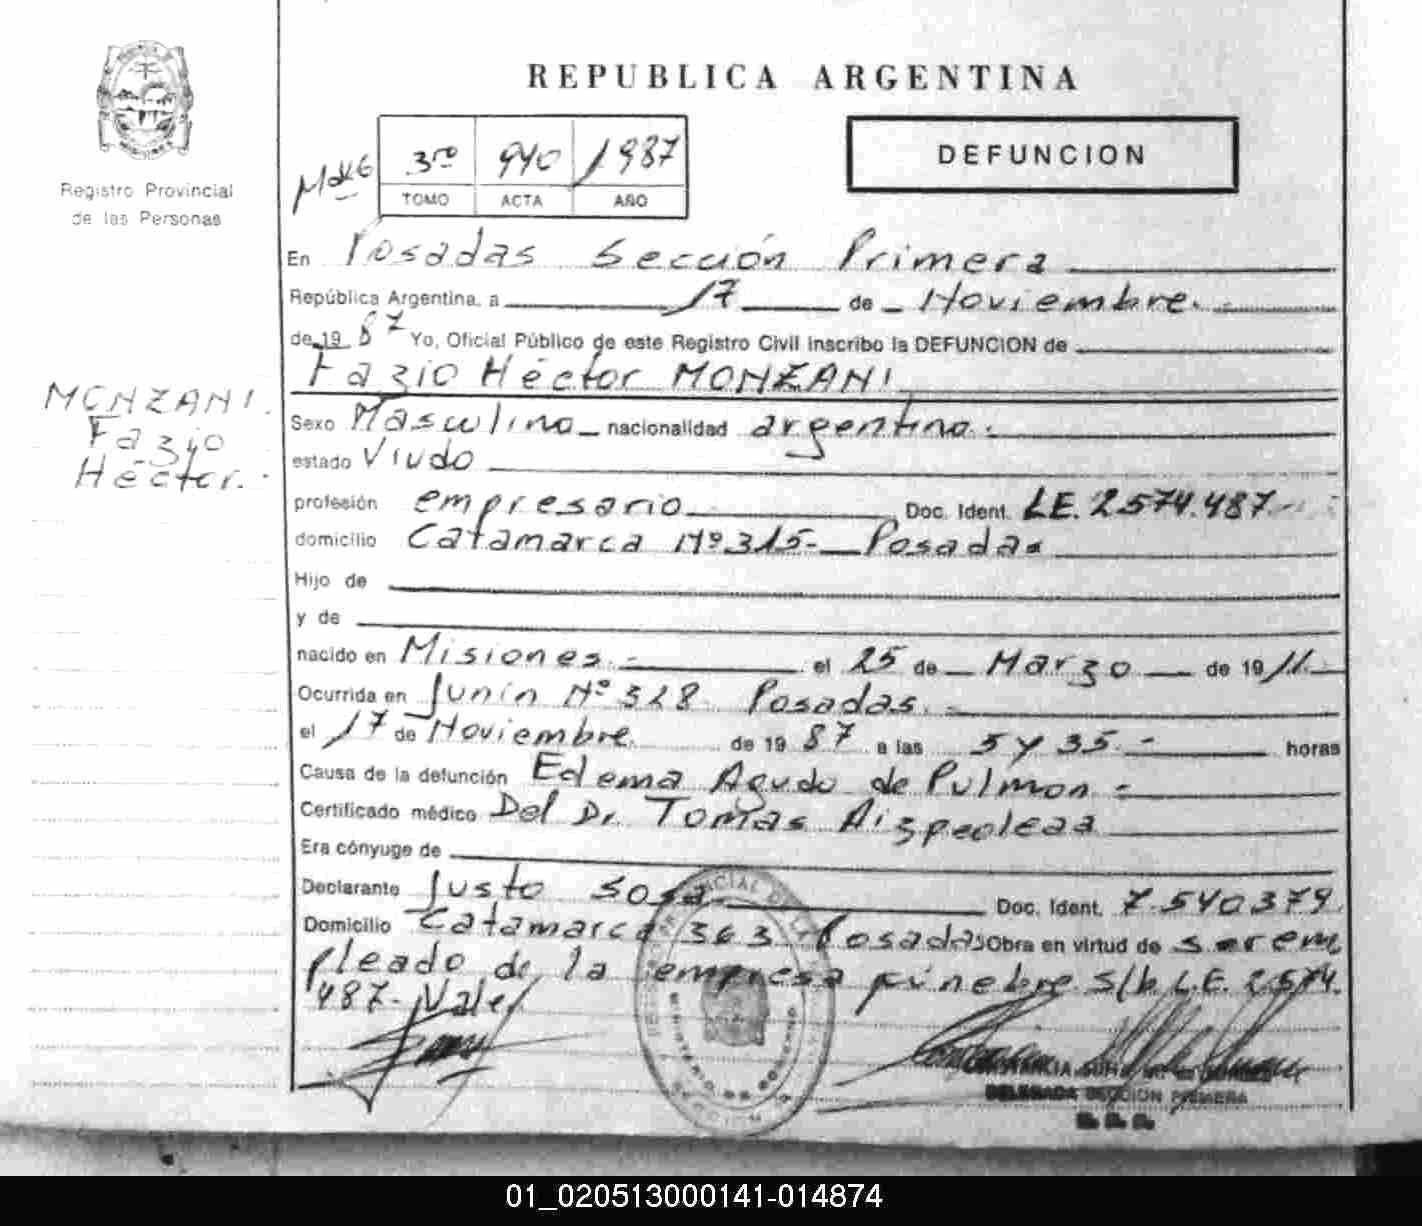 REPUBLICA ARGENTINA
Registro Provincial
de las Personas
3ro 940 1987
TOMO ACTA AÑO
DEFUNCION
En Posadas Sección Primera
República Argentina, a 17 de Noviembre.
de 19 87 Yo, Oficial Público de este Registro Civil inscribo la DEFUNCION de
Fazio Héctor MONZANI
MONZANI.
Fazio
Héctor.-
Sexo Masculino nacionalidad argentina.
estado Viudo
profesión empresario Doc. Ident. LE. 2.574.487.-
domicilio Catamarca Nº 315- Posadas
Hijo de
y de
nacido en Misiones.- el 25 de Marzo de 19 11.
Ocurrida en Junín Nº 328 Posadas.
el 17 de Noviembre de 19 87 a las 5 y 35.- horas
Causa de la defunción Edema Agudo de Pulmon -
Certificado médico Del Dr Tomas
Era cónyuge de
Declarante Justo Sosa Doc. Ident. 7.540379.
Domicilio Catamarca 363 Posadas Obra en virtud de ser em
pleado de la empresa fúnebre S/b L.E. 2.574.
487- Vale/
DELEGADA SECCION PRIMERA
01_020513000141-014874